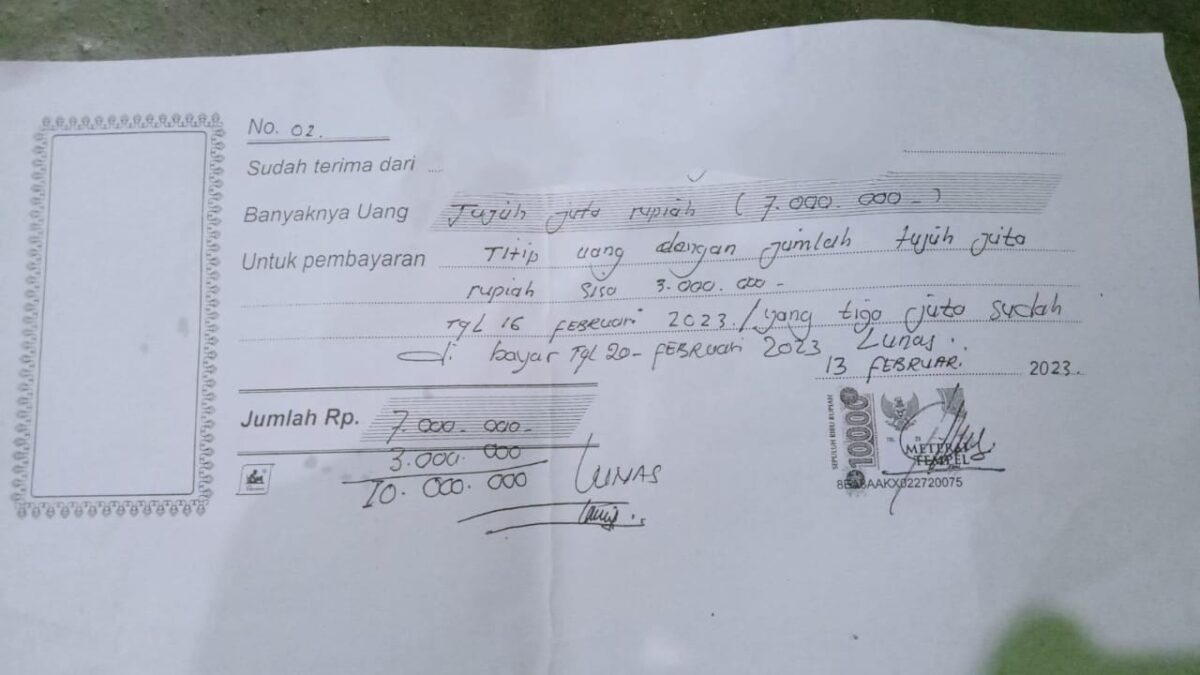 No. 02.
Sudah terima dari
Banyaknya Uang Tujuh juta rupiah ( 7.000.000 - )
Untuk pembayaran Titip uang dengan jumlah tujuh juta
rupiah sisa 3.000.000 -
Tgl 16 FEBRUARI 2023 / yang tiga juta sudah
di bayar Tgl 20 - FEBRUARI 2023 Lunas.
13 FEBRUARI 2023.
Jumlah Rp. 7.000.000 -
3.000.000
10.000.000 LUNAS
SEPULUH RIBU RUPIAH
10000
METERAI
TEMPEL